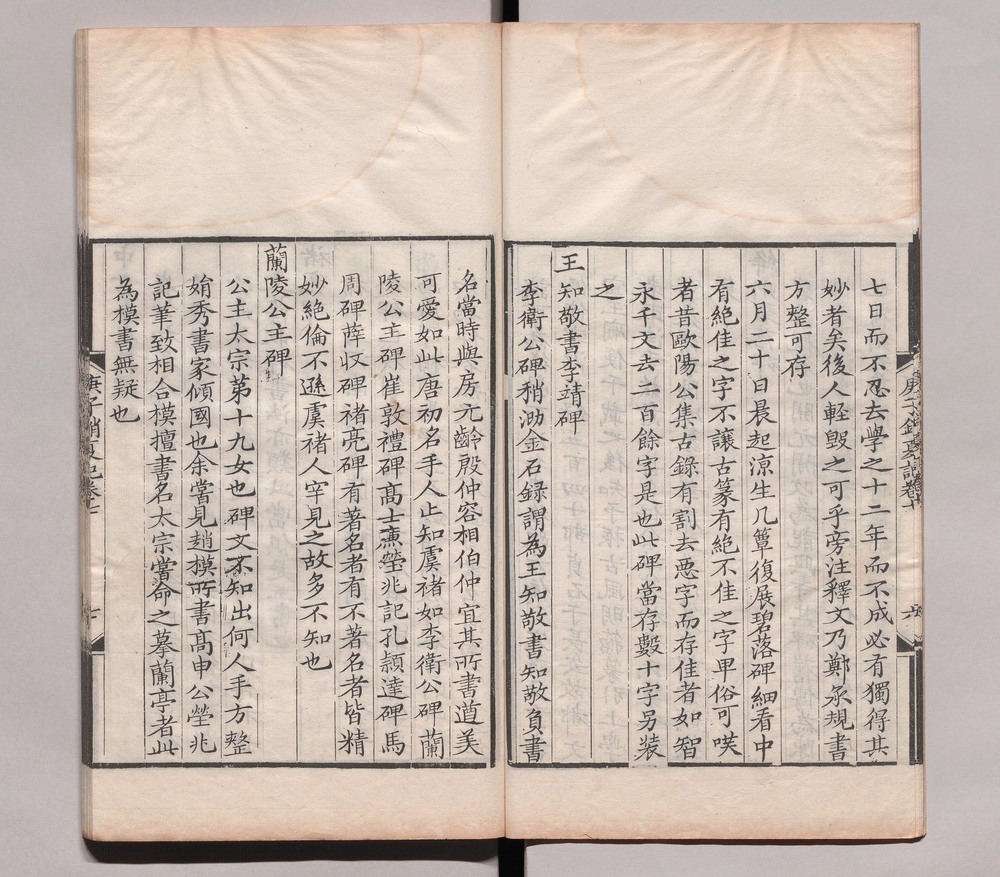 七日而不忍去學之十二年而不成必有獨得其
妙者矣後人輕毀之可乎旁注釋文乃鄭承規書
方整可存
六月二十日晨起涼生几簟復展碧落碑細看中
有絕佳之字不讓古篆有絕不佳之字甲俗可唉
者昔歐陽公集古錄有割去惡字而存佳者如智
永千文去二百餘字是也此碑當存數十字另裝
之
王知敬書李靖碑
李衛公碑稍泐金石録謂為王知敬書知敬負書
名當時與房元齡殷仲容相伯仲宜其所書遒美
可愛如此唐初名手人止知虞褚如李衛公碑蘭
陵公主碑崔敦禮碑髙士亷塋兆記孔頴達碑馬
周碑薛收碑褚亮碑有著名者有不著名者皆精
妙絕倫不遜虞褚人罕見之故多不知也
蘭陵公主碑
公主太宗第十九女也碑文不知出何人手方整
娟秀書家傾國也余嘗見趙模所書髙申公塋兆
記華致相合模擅書名太宗嘗命之摹蘭亭者此
為模書無疑也
庚子銷夏記卷七